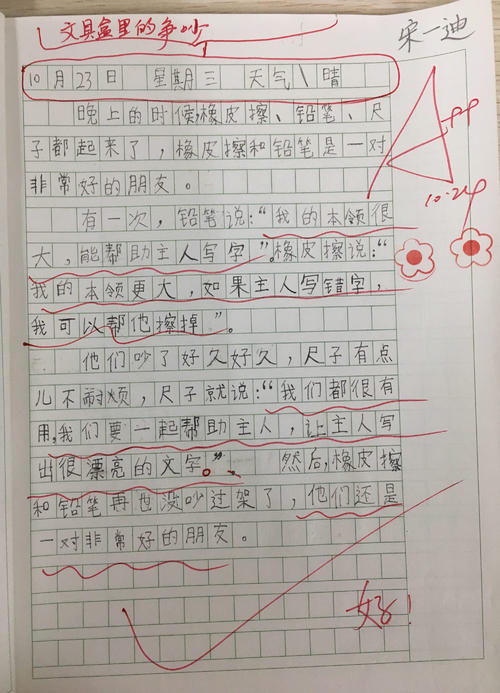 文具盒里的争吵
宋一迪
10月23日 星期三 天气\晴
晚上的时候,橡皮擦、铅笔、尺
子都起来了，橡皮擦和铅笔是一对
非常好的朋友。
有一次，铅笔说：“我的本领很
大，能帮助主人写字”。橡皮擦说：“
我的本领更大，如果主人写错字，
我可以帮他擦掉”。
他们吵了好久好久，尺子有点
儿不耐烦，尺子就说：“我们都很有
用,我们要一起帮助主人，让主人写
出很漂亮的文字。” 然后,橡皮擦
和铅笔再也没吵过架了，他们还是
一对非常好的朋友。
好!
10.24